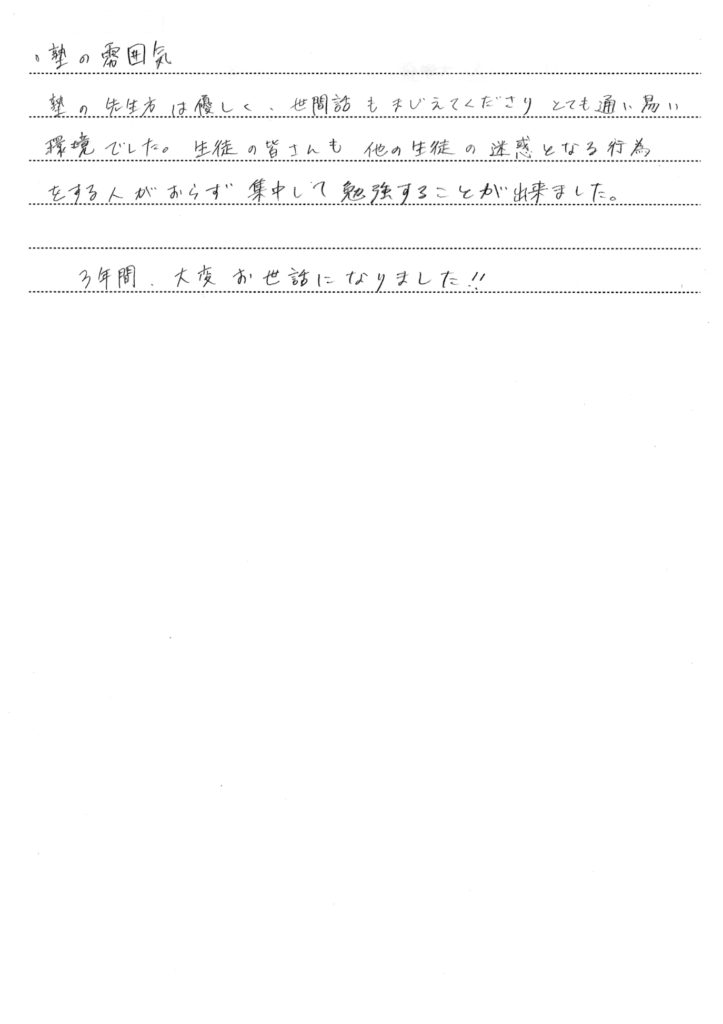 ・塾の雰囲気
塾の先生方は優しく、世間話もまじえてくださりとても通い易い
環境でした。生徒の皆さんも他の生徒の迷惑となる行為
をする人がおらず集中して勉強することが出来ました。
3年間、大変お世話になりました!!